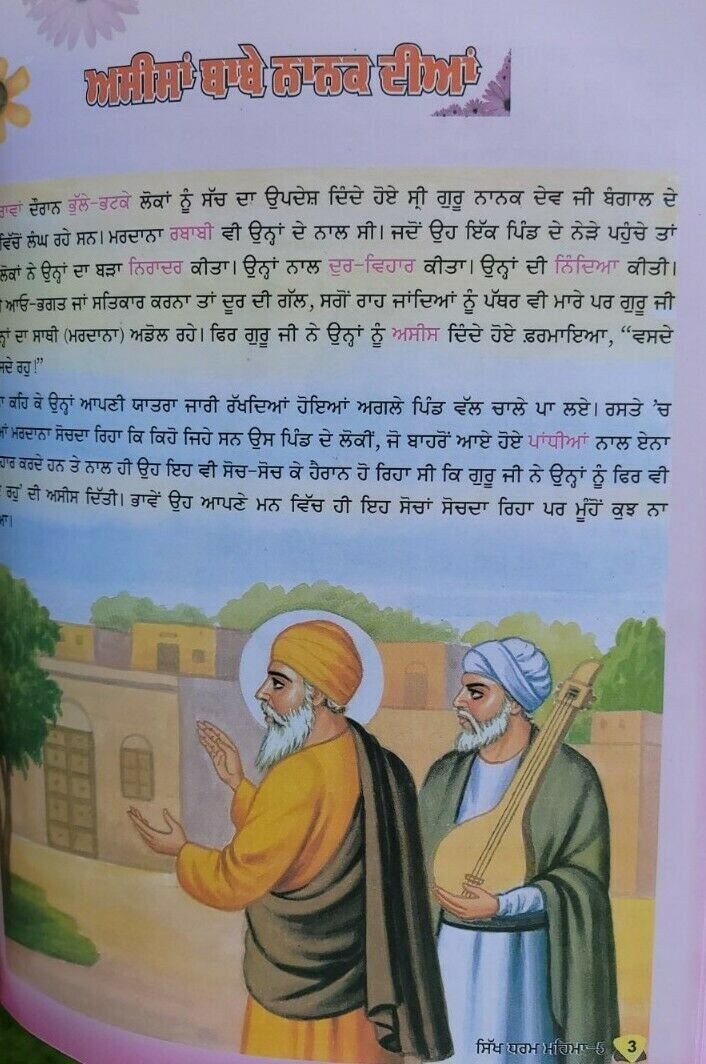 ਅਸੀਸਾਂ ਬਾਬੇ ਨਾਨਕ ਦੀਆਂ
ਦੌਰਾਨ ਭੁੱਲੇ-ਭਟਕੇ ਲੋਕਾਂ ਨੂੰ ਸੱਚ ਦਾ ਉਪਦੇਸ਼ ਦਿੰਦੇ ਹੋਏ ਸ੍ਰੀ ਗੁਰੂ ਨਾਨਕ ਦੇਵ ਜੀ ਬੰਗਾਲ ਦੇ
ਵਿੱਚੋਂ ਲੰਘ ਰਹੇ ਸਨ। ਮਰਦਾਨਾ ਰਬਾਬੀ ਵੀ ਉਨ੍ਹਾਂ ਦੇ ਨਾਲ ਸੀ। ਜਦੋਂ ਉਹ ਇੱਕ ਪਿੰਡ ਦੇ ਨੇੜੇ ਪਹੁੰਚੇ ਤਾਂ
ਲੋਕਾਂ ਨੇ ਉਨ੍ਹਾਂ ਦਾ ਬੜਾ ਨਿਰਾਦਰ ਕੀਤਾ। ਉਨ੍ਹਾਂ ਨਾਲ ਦੁਰ-ਵਿਹਾਰ ਕੀਤਾ। ਉਨ੍ਹਾਂ ਦੀ ਨਿੰਦਿਆ ਕੀਤੀ।
ਆਓ-ਭਗਤ ਜਾਂ ਸਤਿਕਾਰ ਕਰਨਾ ਤਾਂ ਦੂਰ ਦੀ ਗੱਲ, ਸਗੋਂ ਰਾਹ ਜਾਂਦਿਆਂ ਨੂੰ ਪੱਥਰ ਵੀ ਮਾਰੇ ਪਰ ਗੁਰੂ ਜੀ
ਦਾ ਸਾਥੀ (ਮਰਦਾਨਾ) ਅਡੋਲ ਰਹੇ। ਫਿਰ ਗੁਰੂ ਜੀ ਨੇ ਉਨ੍ਹਾਂ ਨੂੰ ਅਸੀਸ ਦਿੰਦੇ ਹੋਏ ਫ਼ਰਮਾਇਆ, “ਵਸਦੇ
ਰਹੁ!”
ਕਹਿ ਕੇ ਉਨ੍ਹਾਂ ਆਪਣੀ ਯਾਤਰਾ ਜਾਰੀ ਰੱਖਦਿਆਂ ਹੋਇਆਂ ਅਗਲੇ ਪਿੰਡ ਵੱਲ ਚਾਲੇ ਪਾ ਲਏ। ਰਸਤੇ ’ਚ
ਮਰਦਾਨਾ ਸੋਚਦਾ ਰਿਹਾ ਕਿ ਕਿਹੋ ਜਿਹੇ ਸਨ ਉਸ ਪਿੰਡ ਦੇ ਲੋਕੀਂ, ਜੋ ਬਾਹਰੋਂ ਆਏ ਹੋਏ ਪਾਂਧੀਆਂ ਨਾਲ ਏਨਾ
ਕਰਦੇ ਹਨ ਤੇ ਨਾਲ ਹੀ ਉਹ ਇਹ ਵੀ ਸੋਚ-ਸੋਚ ਕੇ ਹੈਰਾਨ ਹੋ ਰਿਹਾ ਸੀ ਕਿ ਗੁਰੂ ਜੀ ਨੇ ਉਨ੍ਹਾਂ ਨੂੰ ਫਿਰ ਵੀ
ਰਹੁ’ ਦੀ ਅਸੀਸ ਦਿੱਤੀ। ਭਾਵੇਂ ਉਹ ਆਪਣੇ ਮਨ ਵਿੱਚ ਹੀ ਇਹ ਸੋਚਾਂ ਸੋਚਦਾ ਰਿਹਾ ਪਰ ਮੂੰਹੋਂ ਕੁਝ ਨਾ
ਸਿੱਖ ਧਰਮ ਮਹਿਮਾ-5 3